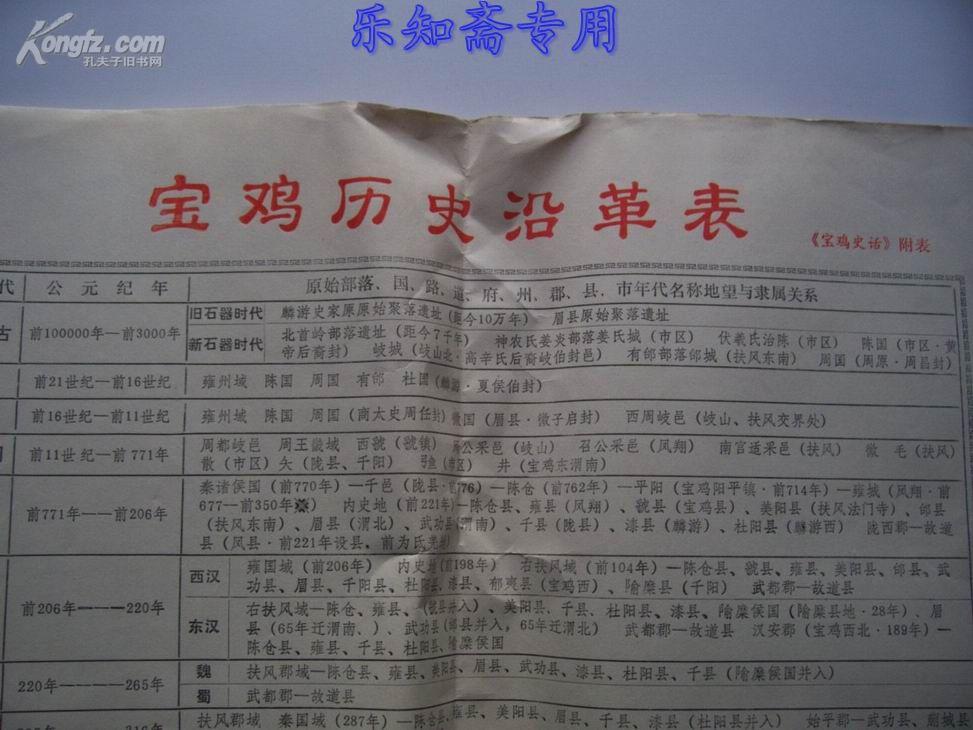 Kongfz.com
孔夫子旧书网
乐知斋专用
宝鸡历史沿革表
《宝鸡史话》附表
代 公元纪年 原始部落、国、路、道、府、州、郡、县、市年代名称地望与隶属关系
古 前100000年—前3000年
旧石器时代 麟游史家原原始聚落遗址（距今10万年） 眉县原始聚落遗址
新石器时代 北首岭部落遗址（距今7千年） 神农氏姜炎部落姜氏城（市区） 伏羲氏治陈（市区） 陈国（市区·黄
帝后裔封） 岐城（岐山北·高辛氏后裔岐伯封邑） 有邰部落邰城（扶风东南） 周国（周原·周昌封）
前21世纪—前16世纪 雍州域 陈国 周国 有邰 杜国（麟游·夏侯伯封）
前16世纪—前11世纪 雍州域 陈国 周国（南太史周任封） 国（眉县·微子启封） 西周岐邑（岐山、扶风交界处）
前11世纪—前771年 周都岐邑 周王畿域 西虢（虢镇） 公采邑（岐山） 召公采邑（凤翔） 南宫适采邑（扶风） 微 毛（扶风）
散（市区） 夨（陇县、千阳） （市区） 井（宝鸡东渭南）
前771年—前206年 秦诸侯国（前770年）—千邑（陇县·前776）—陈仓（前762年）—平阳（宝鸡阳平镇·前714年）—雍城（凤翔·前
677—前350年） 内史地（前221年）—陈仓县、雍县（凤翔）、虢县（宝鸡县）、美阳县（扶风法门寺）、邰县
（扶风东南）、眉县（渭北）、武功县（渭南）、千县（陇县）、漆县（麟游）、杜阳县（麟游西） 陇西郡—故道
县（凤县·前221年设县、前为氐羌地）
前206年———220年
西汉 雍国域（前206年） 内史地（前198年） 右扶风域（前104年）—陈仓县、虢县、雍县、美阳县、邰县、武
功县、眉县、千阳县、杜阳县、漆县、郁夷县（宝鸡西） 隃糜县（千阳） 武都郡—故道县
东汉 右扶风域—陈仓、雍县、（虢县并入）、美阳县、千县、杜阳县、漆县、隃糜侯国（隃糜县地·28年）、眉
县（65年迁渭南、）、武功县（邰县并入，65年迁渭北） 武都郡—故道县 汉安郡（宝鸡西北·189年）—
陈仓县、雍县、千县、杜阳县、隃糜侯国
220年————265年
魏 扶风郡域—陈仓县、雍县、美阳县、眉县、武功县、漆县、杜阳县、千县（隃糜侯国并入）
蜀 武都郡—故道县
扶风郡域 秦国域（287年）—陈仓县、雍县、美阳县、眉县、千县、漆县（杜阳县并入） 始平郡—武功县、